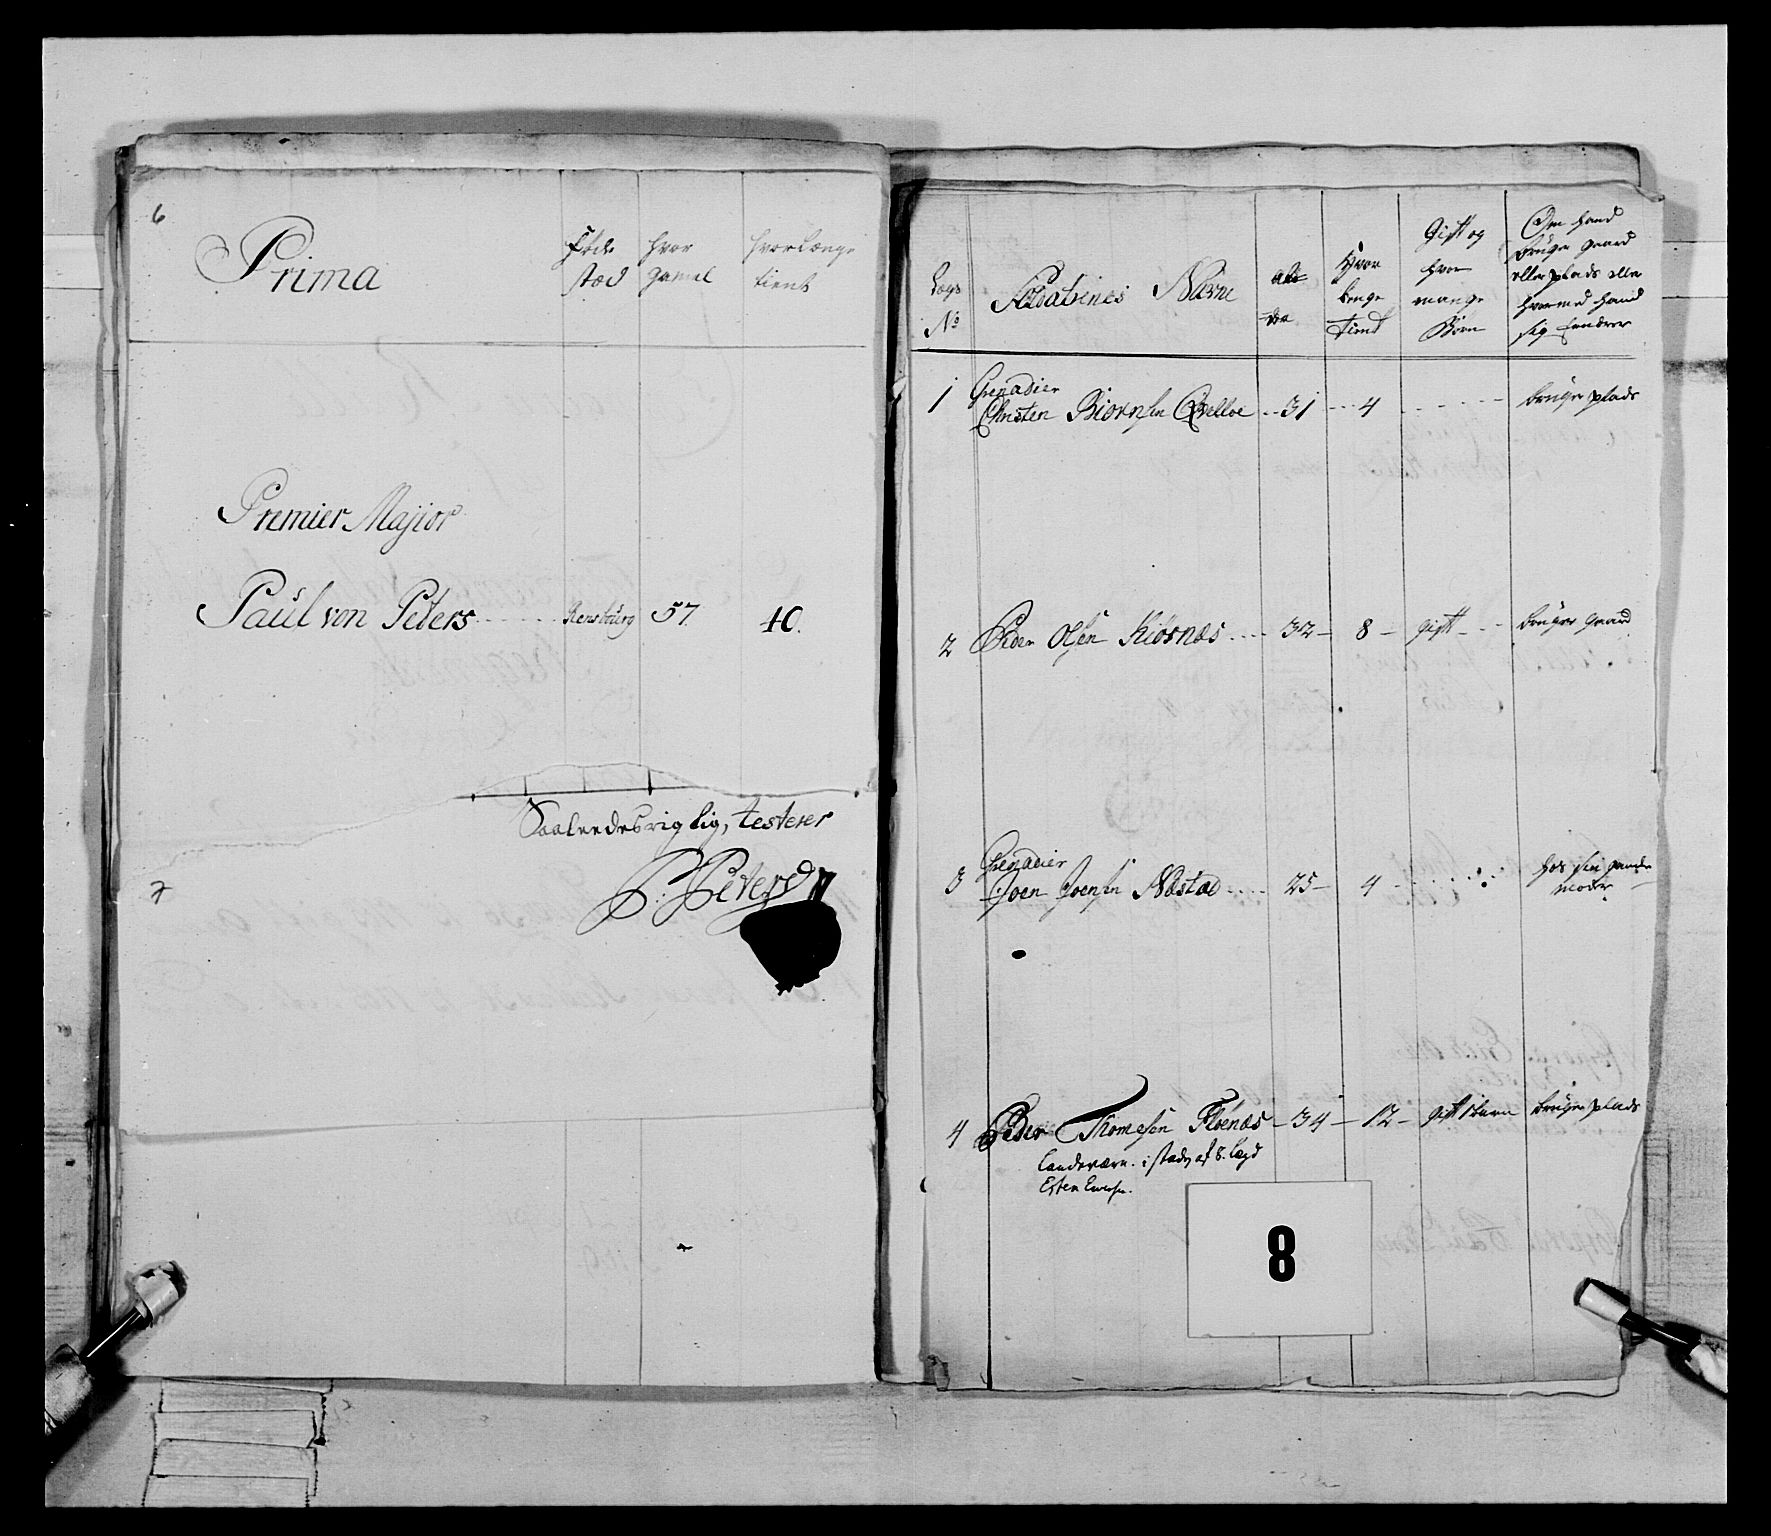 6
Prima
Føde
stæd
hvor
gamel
hvorlænge
tient
Premier Majior
Paul von Peters
Rensburg
57
40.
Saaleedes riglig, testerer
P. Peters
7
Legs
No
Soldaternes Navne
alde
der
Hvor
lenge
tient
Gift og
hvor
mange
Børn
Om hand
bruger gaard
eller plads eller
hvormed hand
sig
1 Grenadier
Christen Biørnsen 31 4 bruger plads
2 Peder Olsen Kiørnæs 32 8 gift bruger gaard
3 Grenadier
Joen Joensen Næstad 25 4 hos sin
moder
4 Peder Thomesen Floenæs 34 12 gift 1 barn bruger plads
Landeværn. i stæden af 8. Legd
Esten
8